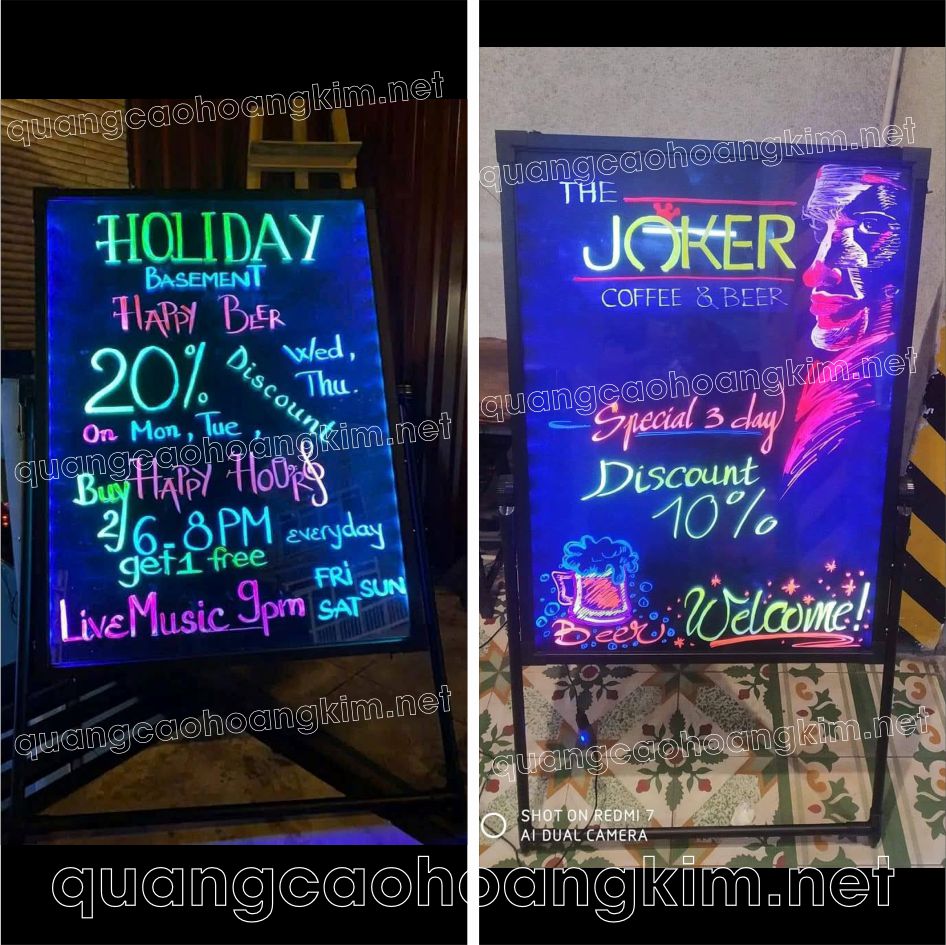 quangcaohoangkim.net
HOLIDAY
BASEMENT
HAPPY BEER
20% Discount
Wed,
Thu.
On Mon, Tue,
quangcaohoangkim.net
HAPPY HOURS
Buy
2
6-8PM everyday
get 1 free
LiveMusic 9pm
FRi
SAT SUN
quangcaohoangkim.net
quangcaohoangkim.net
THE
JOKER
COFFEE & BEER
quangcaohoangkim.net
Special 3 day
Discount
10%
Beer
Welcome!
quangcaohoangkim.net
SHOT ON REDMI 7
AI DUAL CAMERA
quangcaohoangkim.net